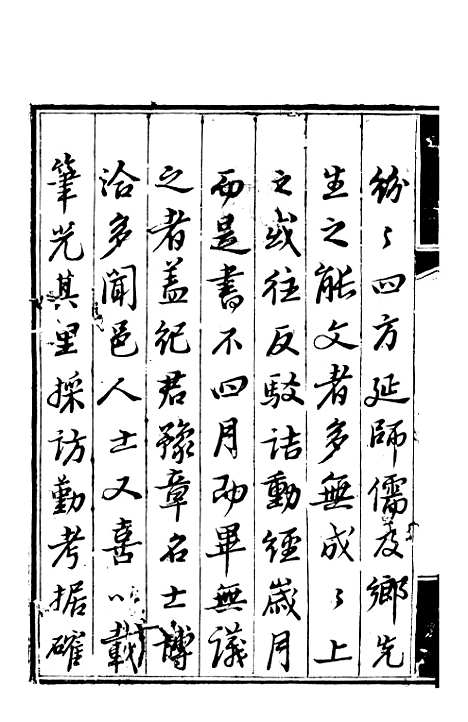 紛々四方延師儒及鄉先
生之能文者多無成々上
之或往反駁詰動經歲月
而是書不四月而畢無議
之者蓋紀君豫章名士博
洽多聞邑人士又喜以載
筆光其里採訪勤考据確